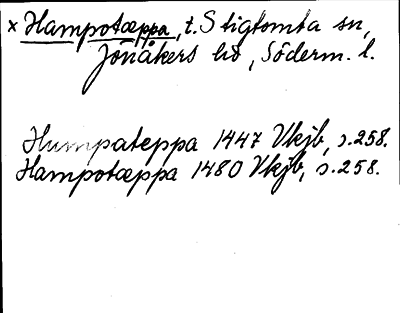 × Hampotæppa, t. Stigtomta sn,
Jönåkers hd, Söderm. l.
Humpateppa 1447 Vkjb, s. 258.
Hampotæppa 1480 Vkjb, s. 258.